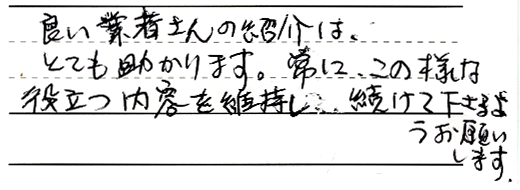 良い業者さんの紹介は、
とても助かります。常に、この様な
役立つ内容を維持し、続けて下さるよ
うお願い
します。